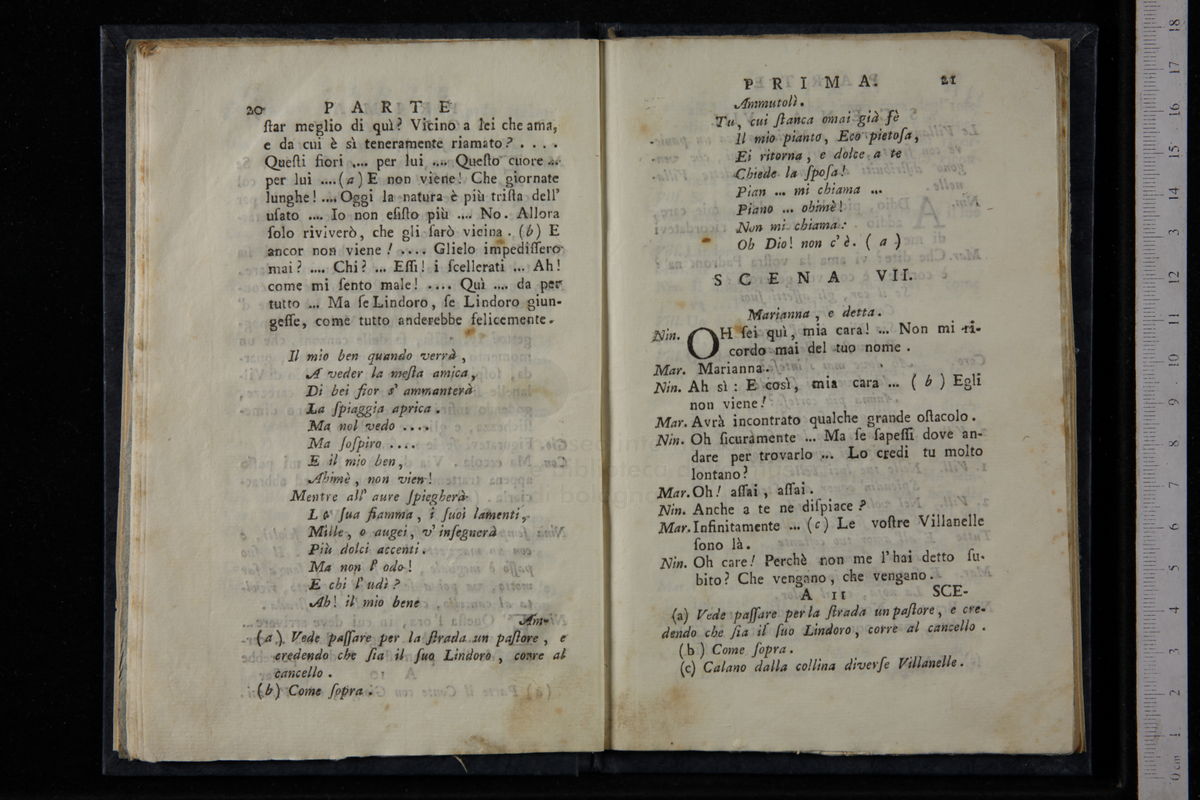 20 PARTE
ſtar meglio di quì? Vicino a lei che ama,
e da cui è sì teneramente riamato? . . . .
Queſti fiori .... per lui .... Queſto cuore ...
per lui .... (a) E non viene! Che giornate
lunghe! .... Oggi la natura è più triſta dell'
uſato .... Io non eſiſto più .... No. Allora
ſolo riviverò, che gli ſarò vicina. (b) E
ancor non viene! .... Glielo impediſſero
mai? .... Chi? ... Eſſi! i ſcellerati ... Ah!
come mi ſento male! .... Quì .... da per
tutto ... Ma ſe Lindoro, ſe Lindoro giun-
geſſe, come tutto anderebbe felicemente.
Il mio ben quando verrà,
A veder la meſta amica,
Di bei fior s' ammanterà
La ſpiaggia aprica.
Ma nol vedo ....
Ma ſoſpiro ....
E il mio ben,
Ahimè, non vien!
Mentre all' aure ſpiegherà
La ſua fiamma, i ſuoi lamenti,
Mille, o augei, v' inſegnerà
Più dolci accenti.
Ma non l' odo!
E chi l' udì?
Ah! il mio bene
Am-
(a) Vede paſſare per la ſtrada un paſtore, e
credendo che ſia il ſuo Lindoro, corre al
cancello.
(b) Come ſopra.
PRIMA. 21
Ammutolì.
Tu, cui ſtanca omai già fè
Il mio pianto, Eco pietoſa,
Ei ritorna, e dolce a te
Chiede la ſpoſa!
Pian ... mi chiama ...
Piano ... ohimè!
Non mi chiama:
Oh Dio! non c'è. (a)
SCENA VII.
Marianna, e detta.
Nin. OH ſei quì, mia cara! ... Non mi ri-
cordo mai del tuo nome.
Mar. Marianna.
Nin. Ah sì: E così, mia cara ... (b) Egli
non viene!
Mar. Avrà incontrato qualche grande oſtacolo.
Nin. Oh ſicuramente ... Ma ſe ſapeſſi dove an-
dare per trovarlo ... Lo credi tu molto
lontano?
Mar. Oh! aſſai, aſſai.
Nin. Anche a te ne diſpiace?
Mar. Infinitamente ... (c) Le voſtre Villanelle
ſono là.
Nin. Oh care! Perchè non me l'hai detto ſu-
bito? Che vengano, che vengano.
A 11 SCE-
(a) Vede paſſare per la ſtrada un paſtore, e cre-
dendo che ſia il ſuo Lindoro, corre al cancello.
(b) Come ſopra.
(c) Calano dalla collina diverſe Villanelle.